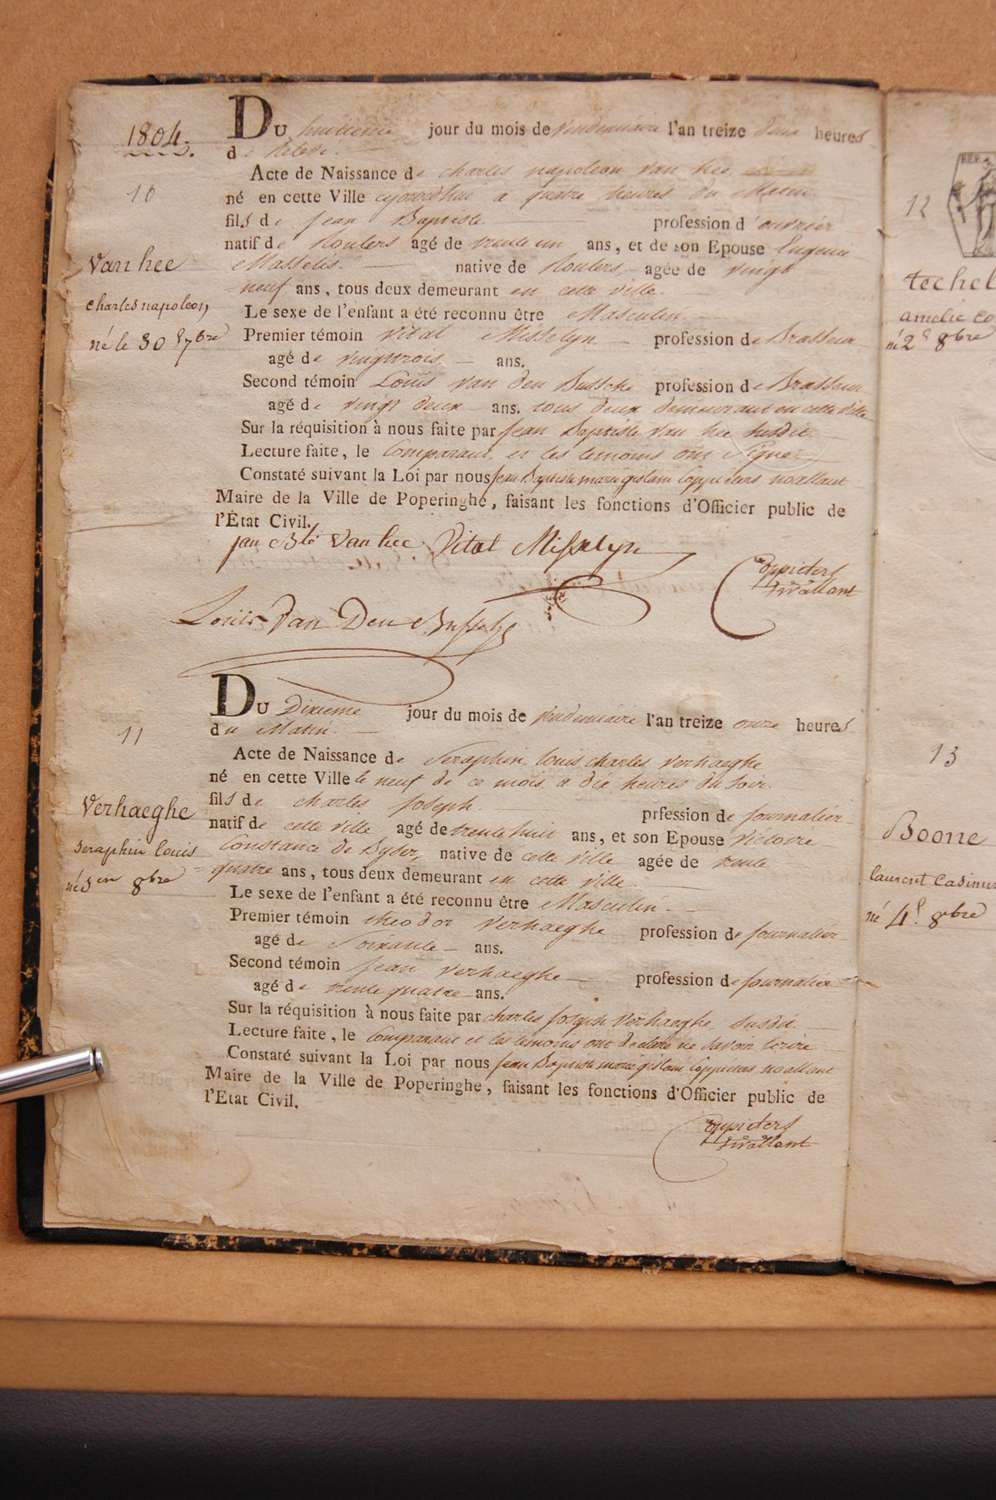 1804.
Du huitieme jour du mois de vendemiaire l'an treize deux heures
de
10
Acte de Naissance de charles napoleon van hee
né en cette Ville cejourdhui a quatre heures du Matin
fils de Jean Baptiste profession d'ouvrier
natif de Roulers agé de trente un ans, et de son Epouse Eugenie
Masselis. native de Roulers agée de vingt
neuf ans, tous deux demeurant en cette ville.
Van hee
charles napoleon
né le 30 7bre
Le sexe de l'enfant a été reconnu être Masculin.
Premier témoin Vital Misselyn profession de Brasseur
agé de vingttrois ans.
Second témoin Louis van den Bussche profession de Brasseur
agé de vingt deux ans. tous deux demeurant en cette ville
Sur la réquisition à nous faite par Jean Baptiste Van hee susdit
Lecture faite, le Comparant et les temoins ont signer
Constaté suivant la Loi par nous Jean Baptiste marie gislain Coppieters Wallant
Maire de la Ville de Poperinghe, faisant les fonctions d'Officier public de
l'État Civil.
jan Bte Van hee Vital Misselyn
Coppieters
Wallant
Louis Van Den Bussche
Du Dixieme jour du mois de vendemiaire l'an treize onze heures
du Matin.
11
Acte de Naissance de Seraphin louis charles Verhaeghe
né en cette Ville le neuf de ce mois a dix heures du soir.
fils de charles Joseph prfession de journalier
natif de cette ville agé de trente huit ans, et son Epouse victoire
Constance de Dyser, native de cette ville agée de trente
quatre ans, tous deux demeurant en cette ville.
Verhaeghe
Seraphin louis
né 1 en 8bre
Le sexe de l'enfant a été reconnu être Masculin.
Premier témoin theodor Verhaeghe profession de journalier
agé de Soixante ans.
Second témoin Jean Verhaeghe profession de journalier
agé de trente quatre ans.
Sur la réquisition à nous faite par charles Joseph Verhaeghe susdit
Lecture faite, le Comparant et les temoins ont declaré ne savoir ecrire
Constaté suivant la Loi par nous Jean Baptiste marie gislain Coppieters Wallant
Maire de la Ville de Poperinghe, faisant les fonctions d'Officier public de
l'Etat Civil.
Coppieters
Wallant
12
techel
amelie co
né 2 8bre
13
Boone
laurent Casimir
né 4 8bre